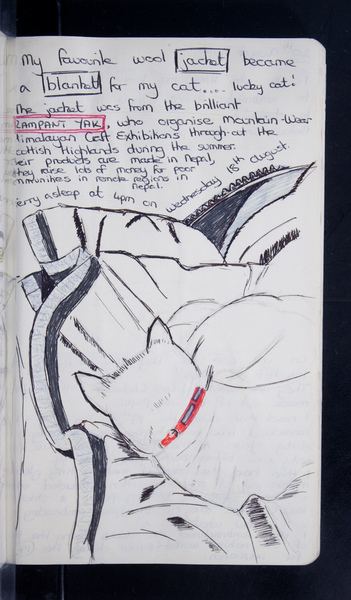 My favourite wool jacket became
a blanket for my cat.... lucky cat!
The jacket was from the brilliant
RAMPANT YAK, who organise Mountain-Wear
Himalayan Craft Exhibitions through-out the
Scottish Highlands during the summer.
Their products are made in Nepal,
they raise lots of money for poor
communities in remote regions in
Nepal.
asleep at 4pm on Wednesday 15th august.